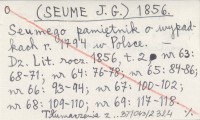 0 (SEUME J.G.) 1856.
Seumego pamiętnik o wypad-
kach r. 1794 w Polsce. —
Dz. Lit. rocz. 1856, t. 2 nr 63:
68-71; nr 64: 76-78; nr 65: 84-86;
nr 66: 93-94; nr 67: 100-102;
nr 68: 109-110; nr 69: 117-118.
Tłumaczenie z